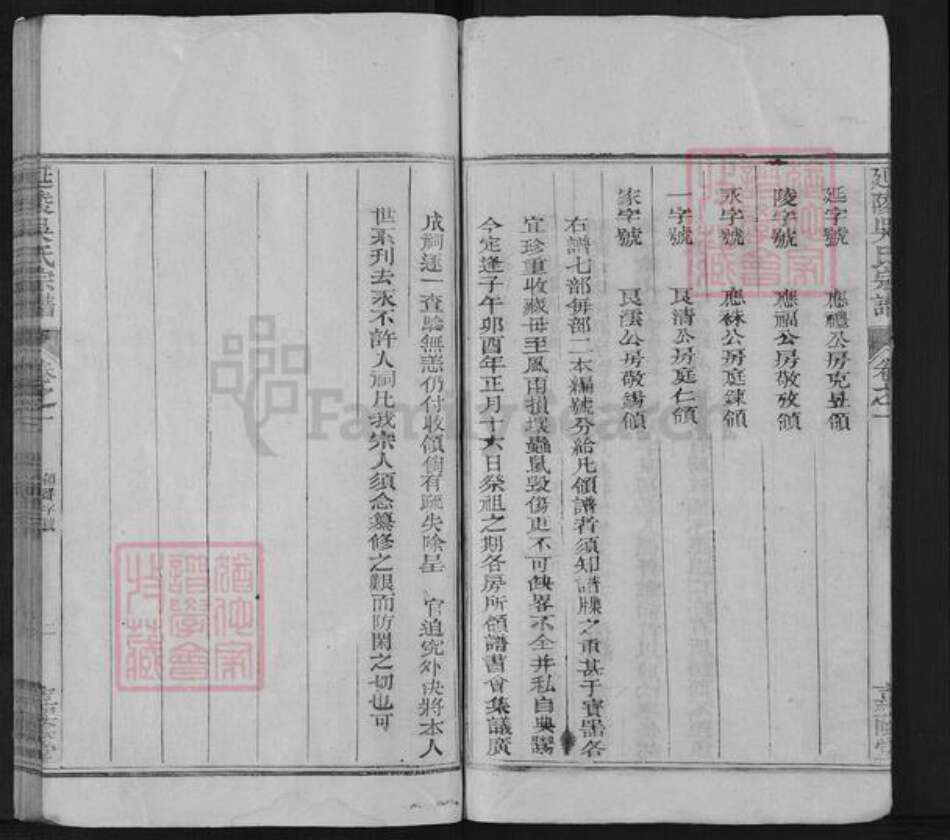 延陵吳氏宗譜
卷之一
延字號 應禮公房克昱領
陵字號 應福公房敬攷領
永字號 應森公房庭鍊領
一字號 良清公房庭仁領
家字號 良漢公房敬錫領
右譜七部每部二本編號分給凡領譜者須知譜牒之重甚于寶器各
宜珍重收藏毋至風雨損壞蟲鼠毀傷更不可缺畧不全并私自典鬻
今定逢子午卯酉年正月十六日祭祖之期各房所領譜書會集議廣
成祠逐一查驗無恙仍付收領倘有疏失除呈 官追究外決將本人
世系刊去永不許入祠凡我宗人須念纂修之艱而防閑之切也可
延陵吳氏宗譜
卷之一
二
FamilySearch